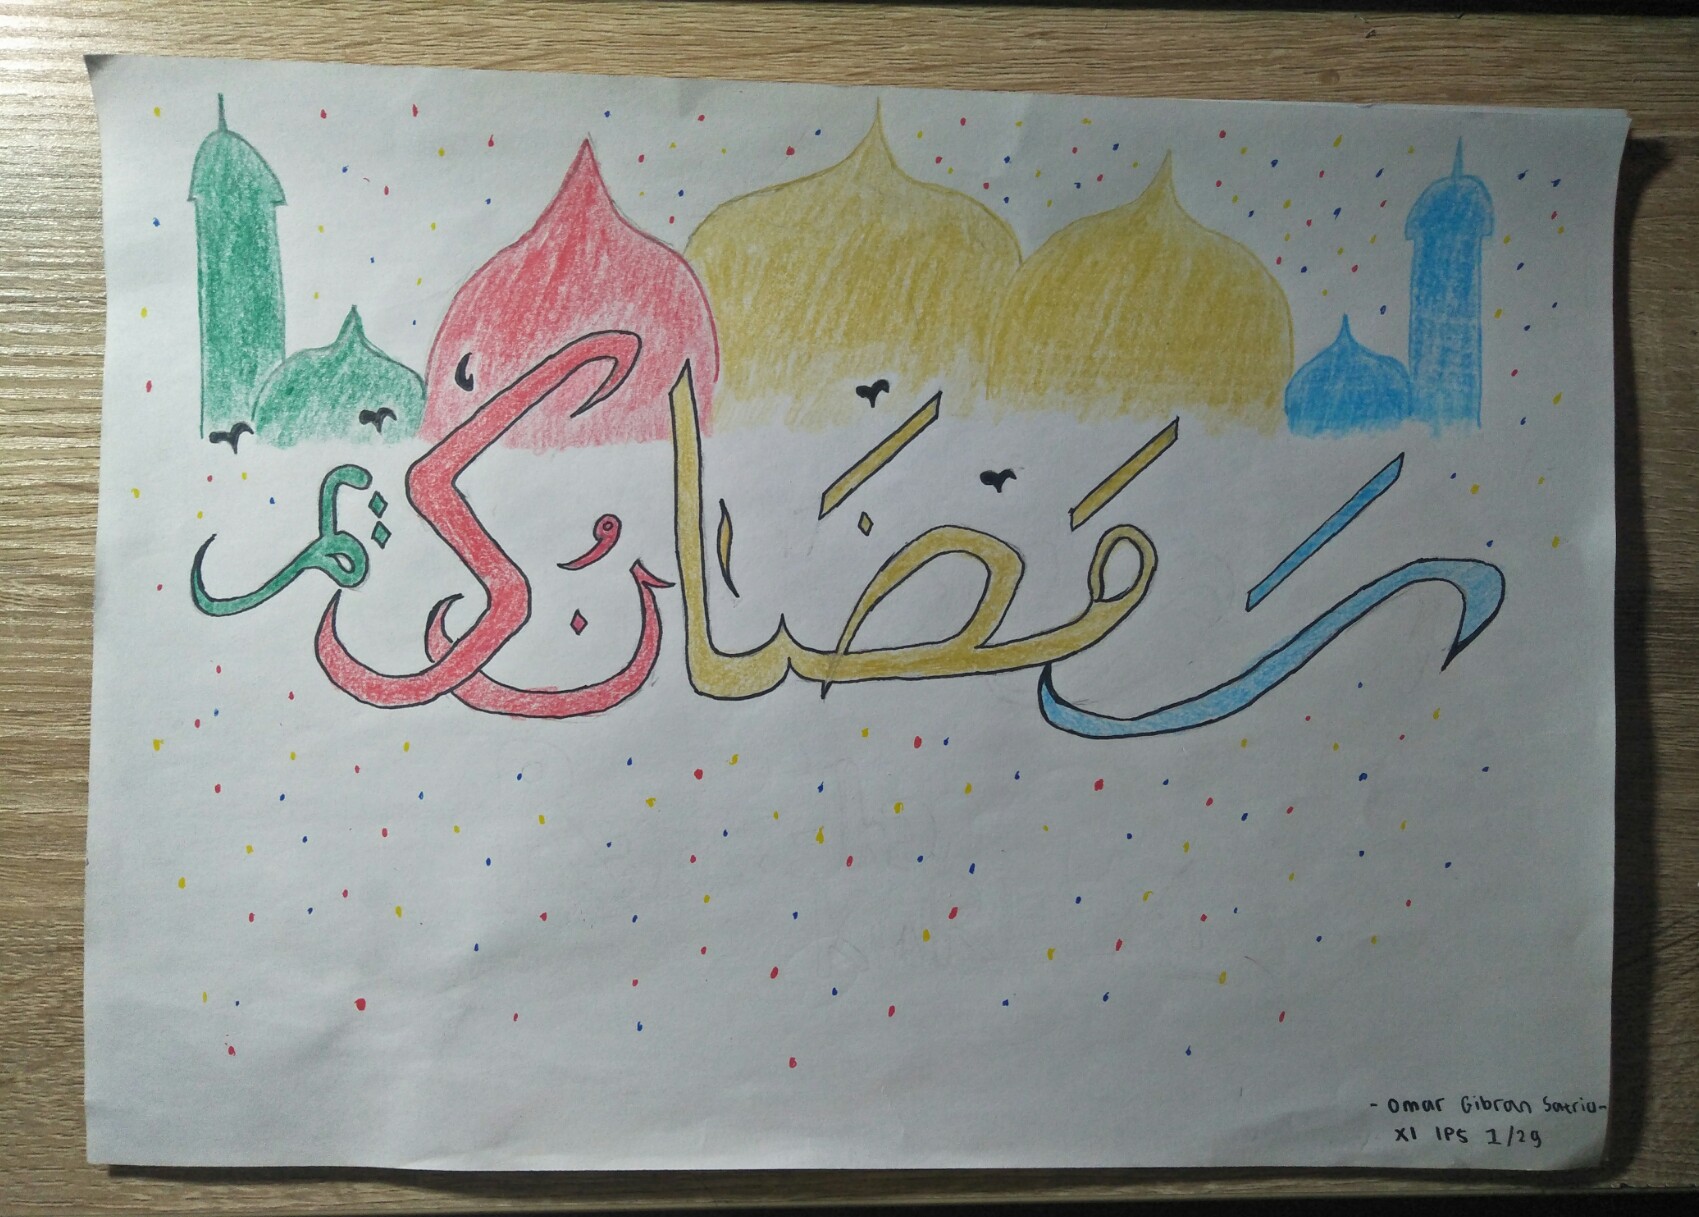 رمضان كريم
- Omar Gibran Satria -
XI IPS 1/29